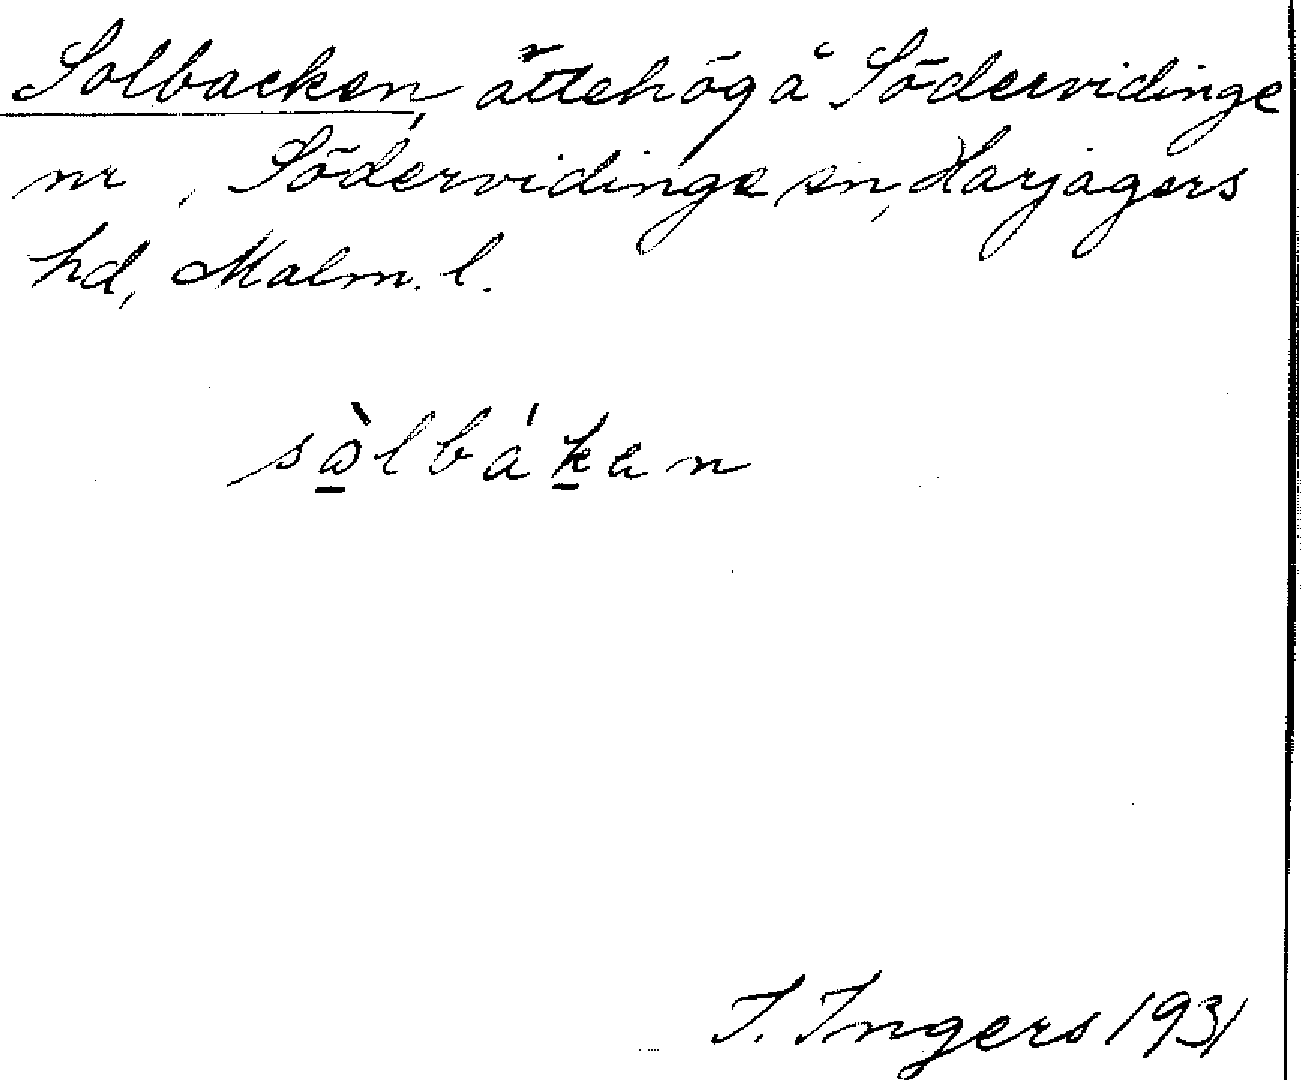 Solbacken, ättehög å Södervidinge
nr , Södervidinge sn, Harjagers
hd, Malm. l.
sòlbáken
I. Ingers 1931